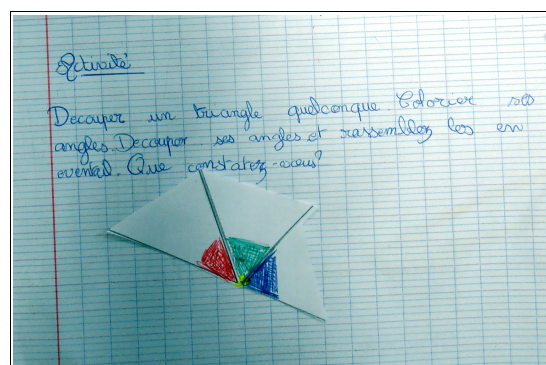 Activité
Decouper un triangle quelconque. Colorier ses
angles. Decouper ses angles et rassemblez les en
evental. Que constatez-vous?